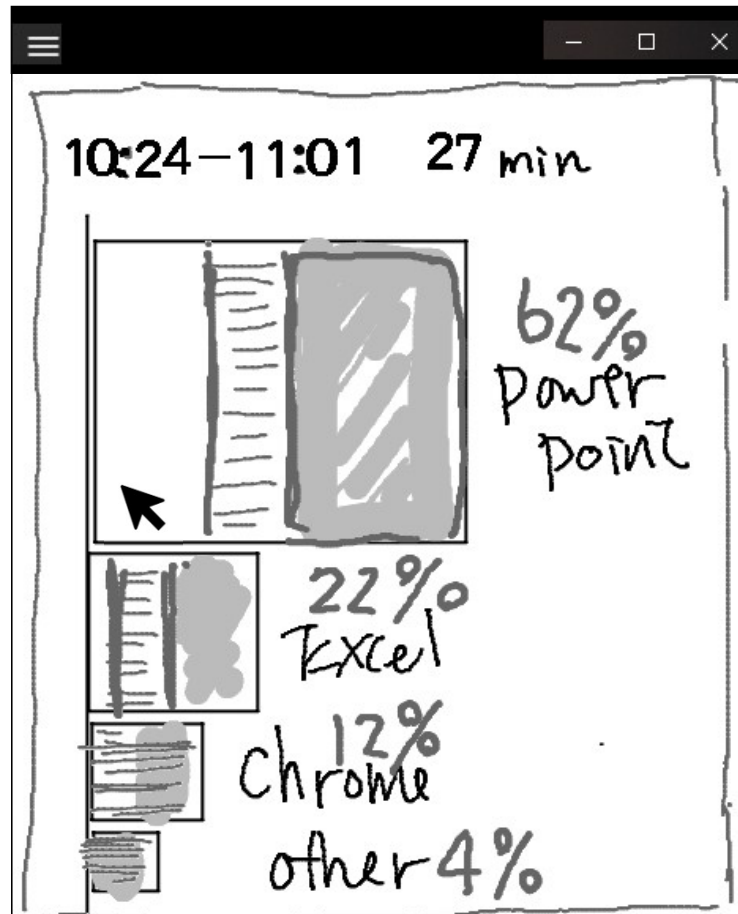 10:24-11:01 27 min
62%
Power
point
22%
Excel
12%
Chrome
other 4%